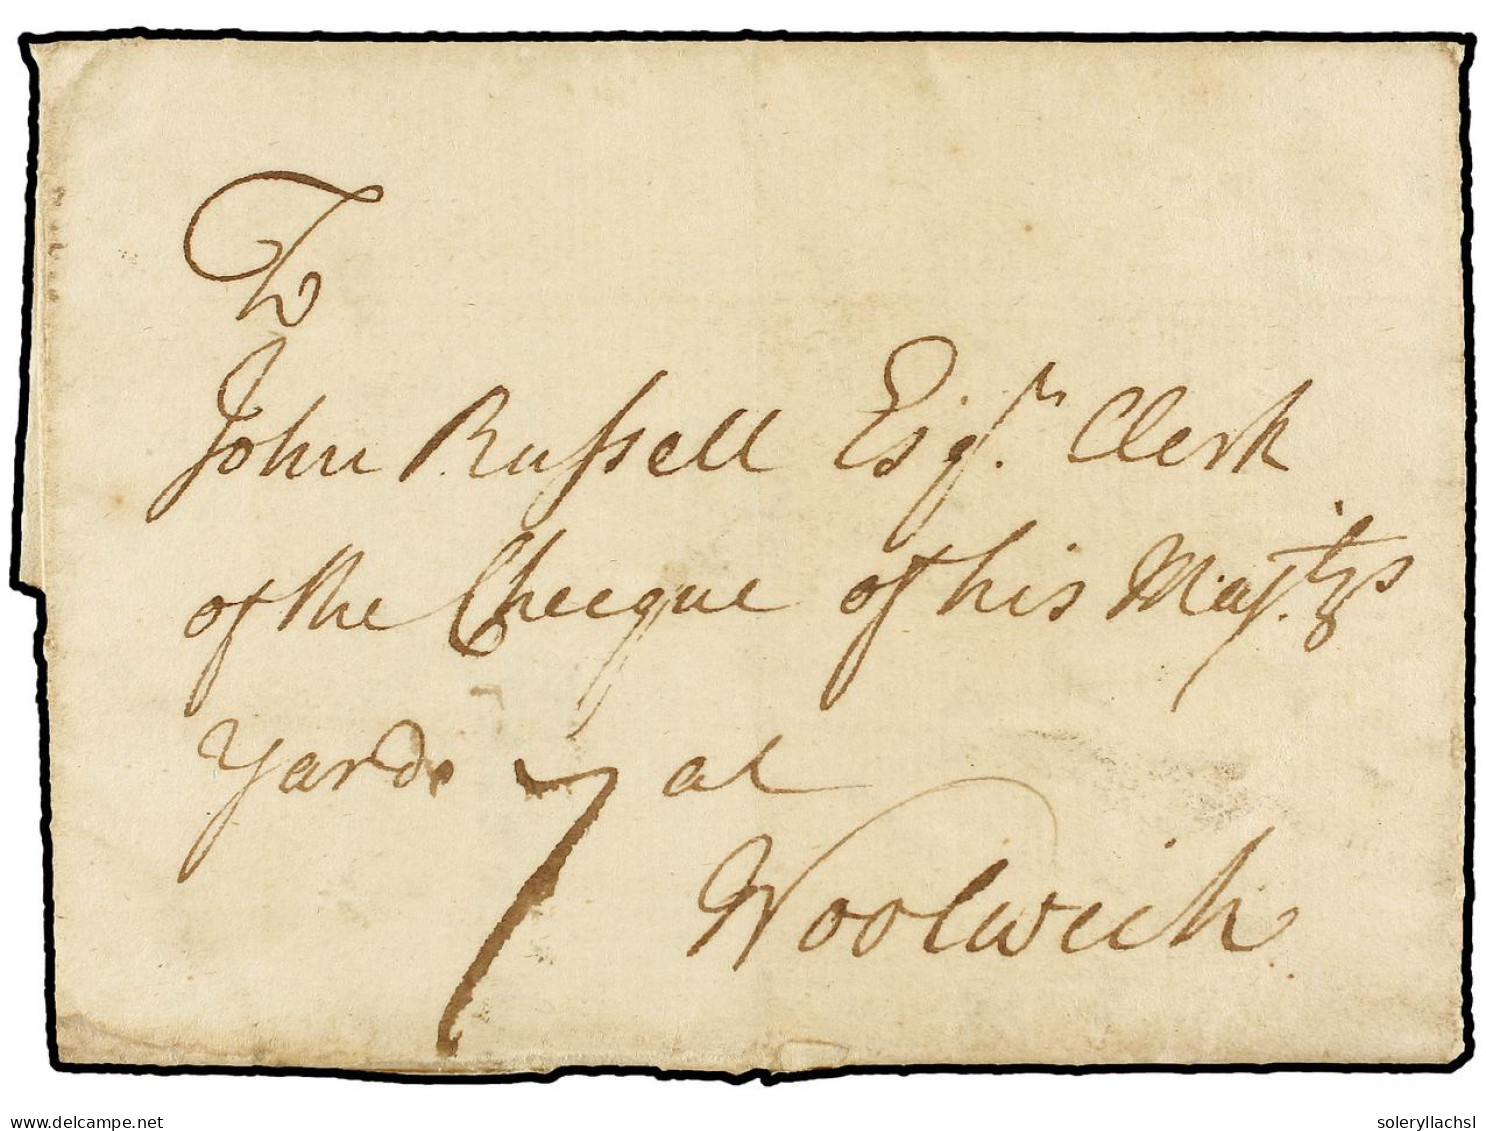 To
John Russell Esqr. Clerk
of the Checque of his Maj.tys
Yarde 7 at
Woolwich
delcampe.net
soleryllachsl